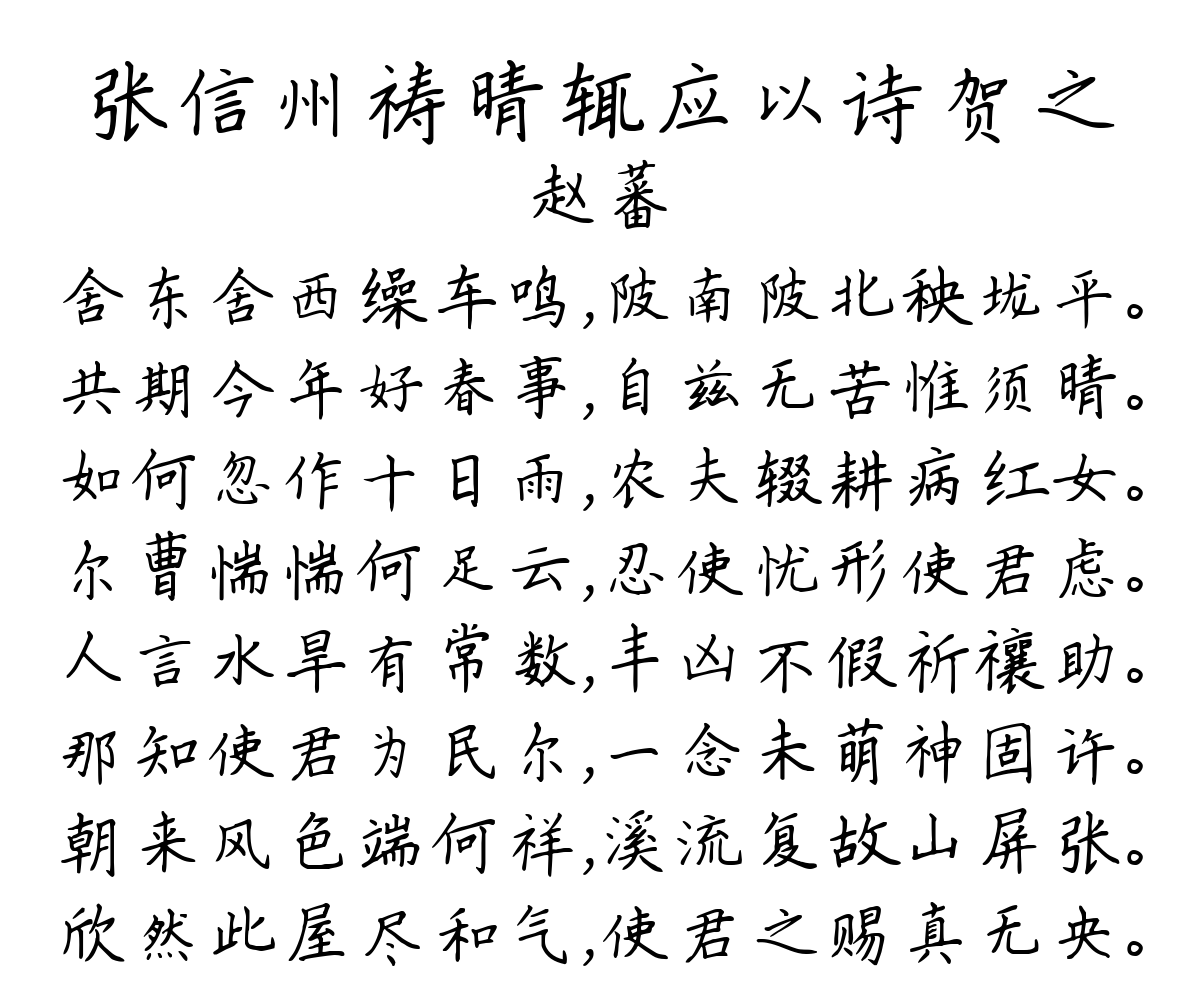 张信州祷晴辄应以诗贺之
赵蕃
舍东舍西缲车鸣,陂南陂北秧垅平。
共期今年好春事,自兹无苦惟须晴。
如何忽作十日雨,农夫辍耕病红女。
尔曹惴惴何足云,忍使忧形使君虑。
人言水旱有常数,丰凶不假祈禳助。
那知使君为民尔,一念未萌神固许。
朝来风色端何祥,溪流复故山屏张。
欣然此屋尽和气,使君之赐真无央。